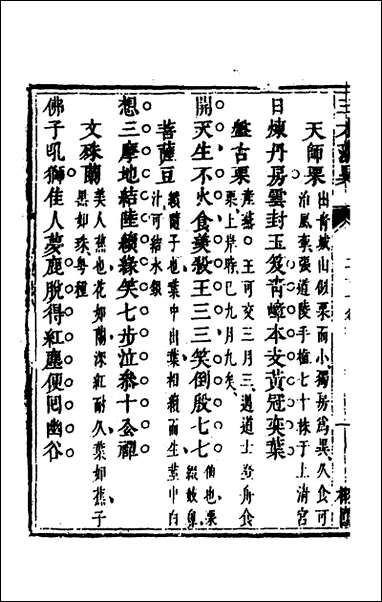 天師栗 出青城山似栗而小獨房爲異久食可
治風攣張道陵手植七十株于上清宮
日煉丹房雲封玉笈青嶂本支黃冠奕葉
盤古栗
王可交三月三遇道士登舟食
栗上岸時已九月九矣
開天生不火食美殺王三三笑倒殷七七
菩薩豆 續隨子也葉中出葉相續而生莖中白
汁可結水銀
想三摩地結陸續緣笑七步泣參十公禪
文殊蘭 美人蕉也花如蘭深紅耐久葉如蕉子
黑如珠粵種
佛子吼獅佳人夢鹿脫得紅塵便囘幽谷